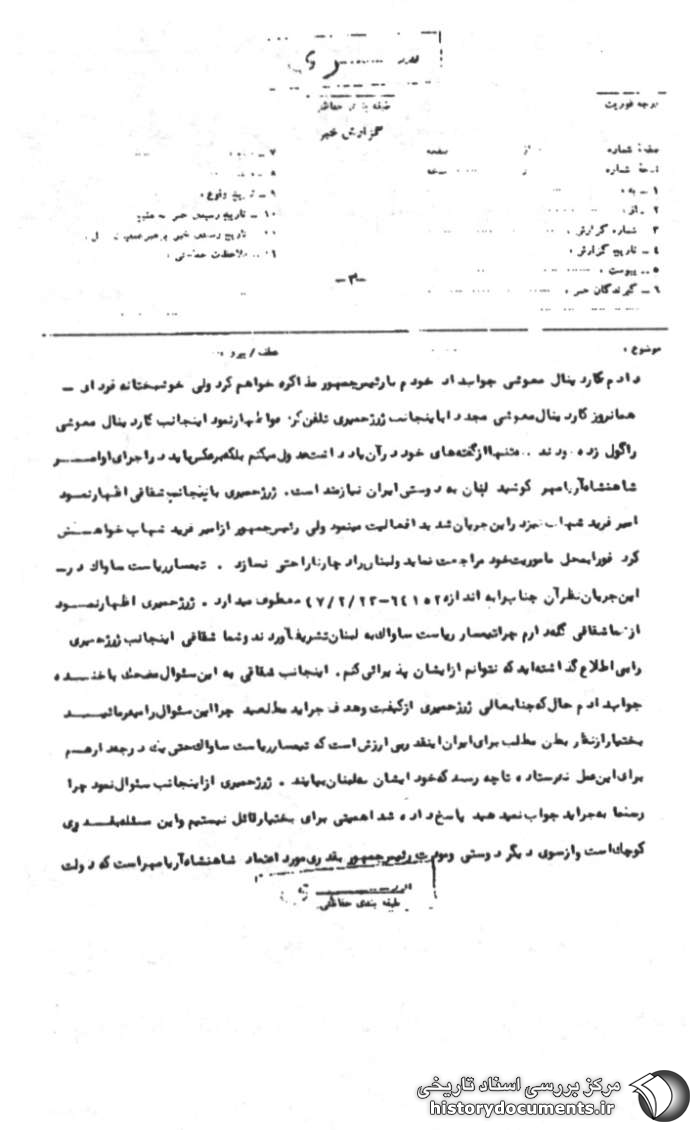 سری
طبقه بندی حفاظتی
درجه فوریت
گزارش خبر
صفحهٔ شماره از صفحه
نسخهٔ شماره از نسخه
۱ ـ به :
۲ ـ از :
۳ شماره گزارش :
۴ ـ تاریخ گزارش :
۵ ـ پیوست :
۶ ـ گیرندگان خبر :
۷ ـ
۸ ـ
۹ ـ تاریخ وقوع :
۱۰ ـ تاریخ رسیدن خبر به منبع
تاریخ رسیدن خبر برهبر عملیات
ملاحظات حفاظتی :
ـ۳ـ
موضوع :
عطف / پیرو
دادم کاردینال معوشی جوابداد خودم با رئیس‌جمهور مذاکره خواهم کرد ولی خوشبختانه فردای ـ
همانروز کاردینال معوشی مجددا باینجانب ژرژحمیری تلفن کرد و اظهار نمود اینجانب کاردینال معوشی
را گول زده بودند نه‌تنها از گفته‌های خود در آن یادداشت عدول میکنم بلکه برعکس باید در اجرای اوامر
شاهنشاه آریامهر کوشید لبنان به دوستی ایران نیازمند است . ژرژحمیری باینجانب شقاقی اظهار نمود
امیر فرید شهاب نیز در این جریان شدیدا فعالیت مینمود ولی رئیس‌جمهور از امیر فرید شهاب خواهش
کرد فورا بمحل ماموریت خود مراجعت نماید و لبنان را دچار ناراحتی نسازد . تیمسار ریاست ساواک در ـ
این جریان نظر آن جناب را به اندازه ۶۴۱۵۲-۴۷/۲/۲۳ معطوف میدارد . ژرژحمیری اظهار نمود
از شما شقاقی گله دارم چرا تیمسار ریاست ساواک به لبنان تشریف آوردند و شما شقاقی اینجانب ژرژحمیری
را بی اطلاع گذاشته‌اید که نتوانم از ایشان پذیرائی کنم . اینجانب شقاقی به این سئوال مضحک با خنده
جوابدادم حال که جنابعالی ژرژحمیری از کیفیت وهدف جراید مطلعید چرا این سئوال را میفرمائید
بختیار از نظر بطن مطلب برای ایران اینقدر بی ارزش است که تیمسار ریاست ساواک حتی یک درجه‌دار هم
برای این عمل نفرستاده تا چه رسد که خود ایشان به لبنان بیایند . ژرژحمیری از اینجانب سئوال نمود چرا
رسما به جراید جواب نمیدهید پاسخ داده شد اهمیتی برای بختیار قائل نیستیم و این مسئله بقدری
کوچک است و از سوی دیگر دوستی ومودت رئیس‌جمهور بقدری مورد اعتماد شاهنشاه آریامهر است که دولت
سری
طبقه بندی حفاظتی
مرکز بررسی اسناد تاریخی
historydocuments.ir